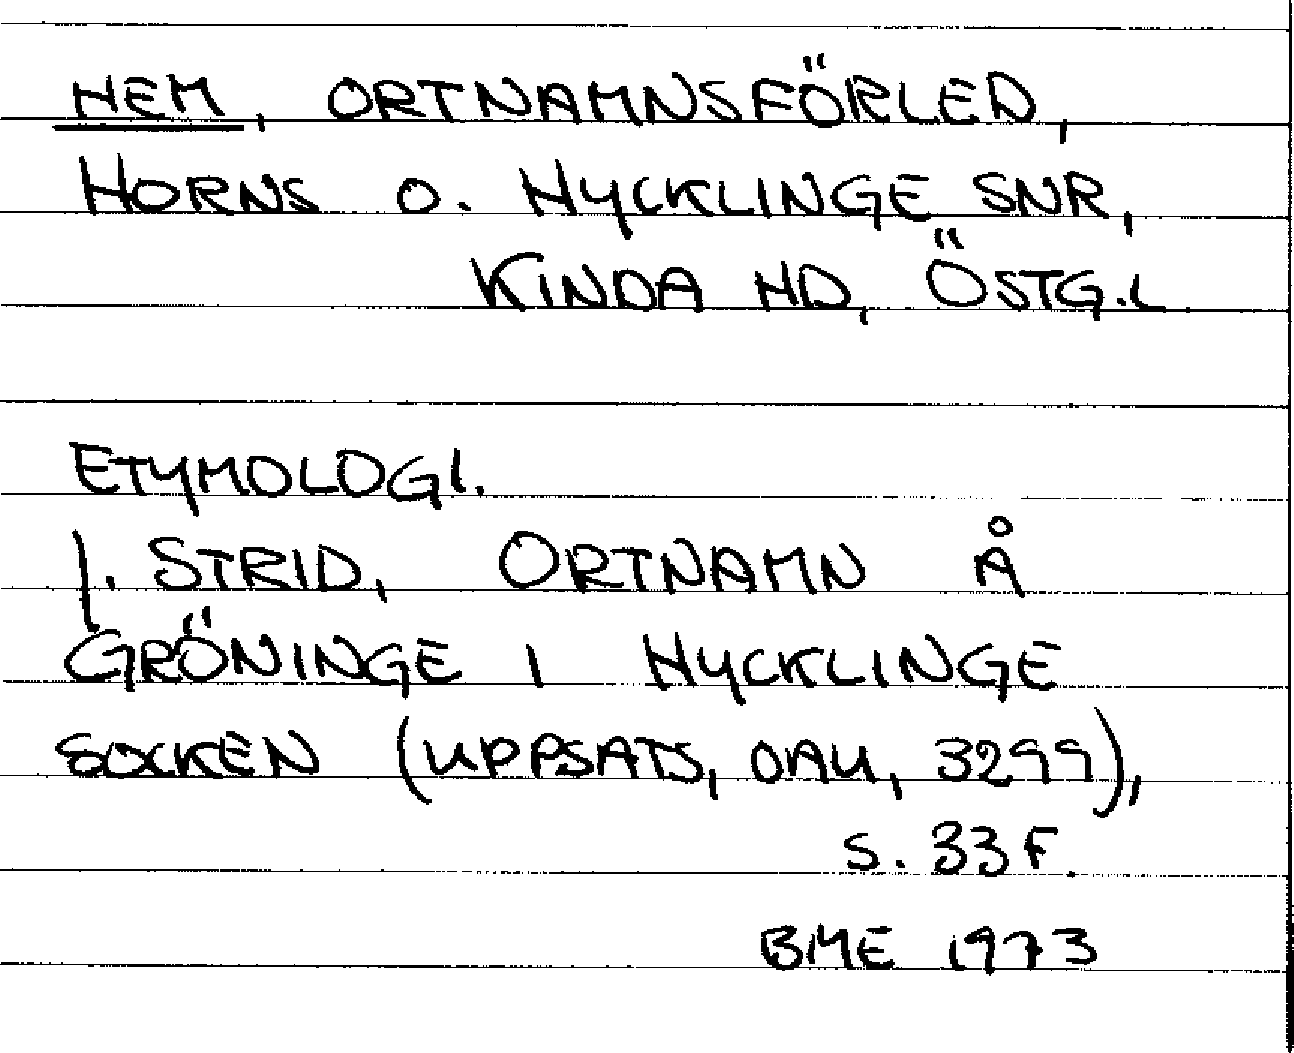 HEM, ORTNAMNSFÖRLED,
HORNS O. HYCKLINGE SNR,
KINDA HD, ÖSTG.L.
ETYMOLOGI.
J. STRID, ORTNAMN Å
GRÖNINGE I HYCKLINGE
SOCKEN (UPPSATS, OAU, 3299),
S. 33 F.
BME 1973